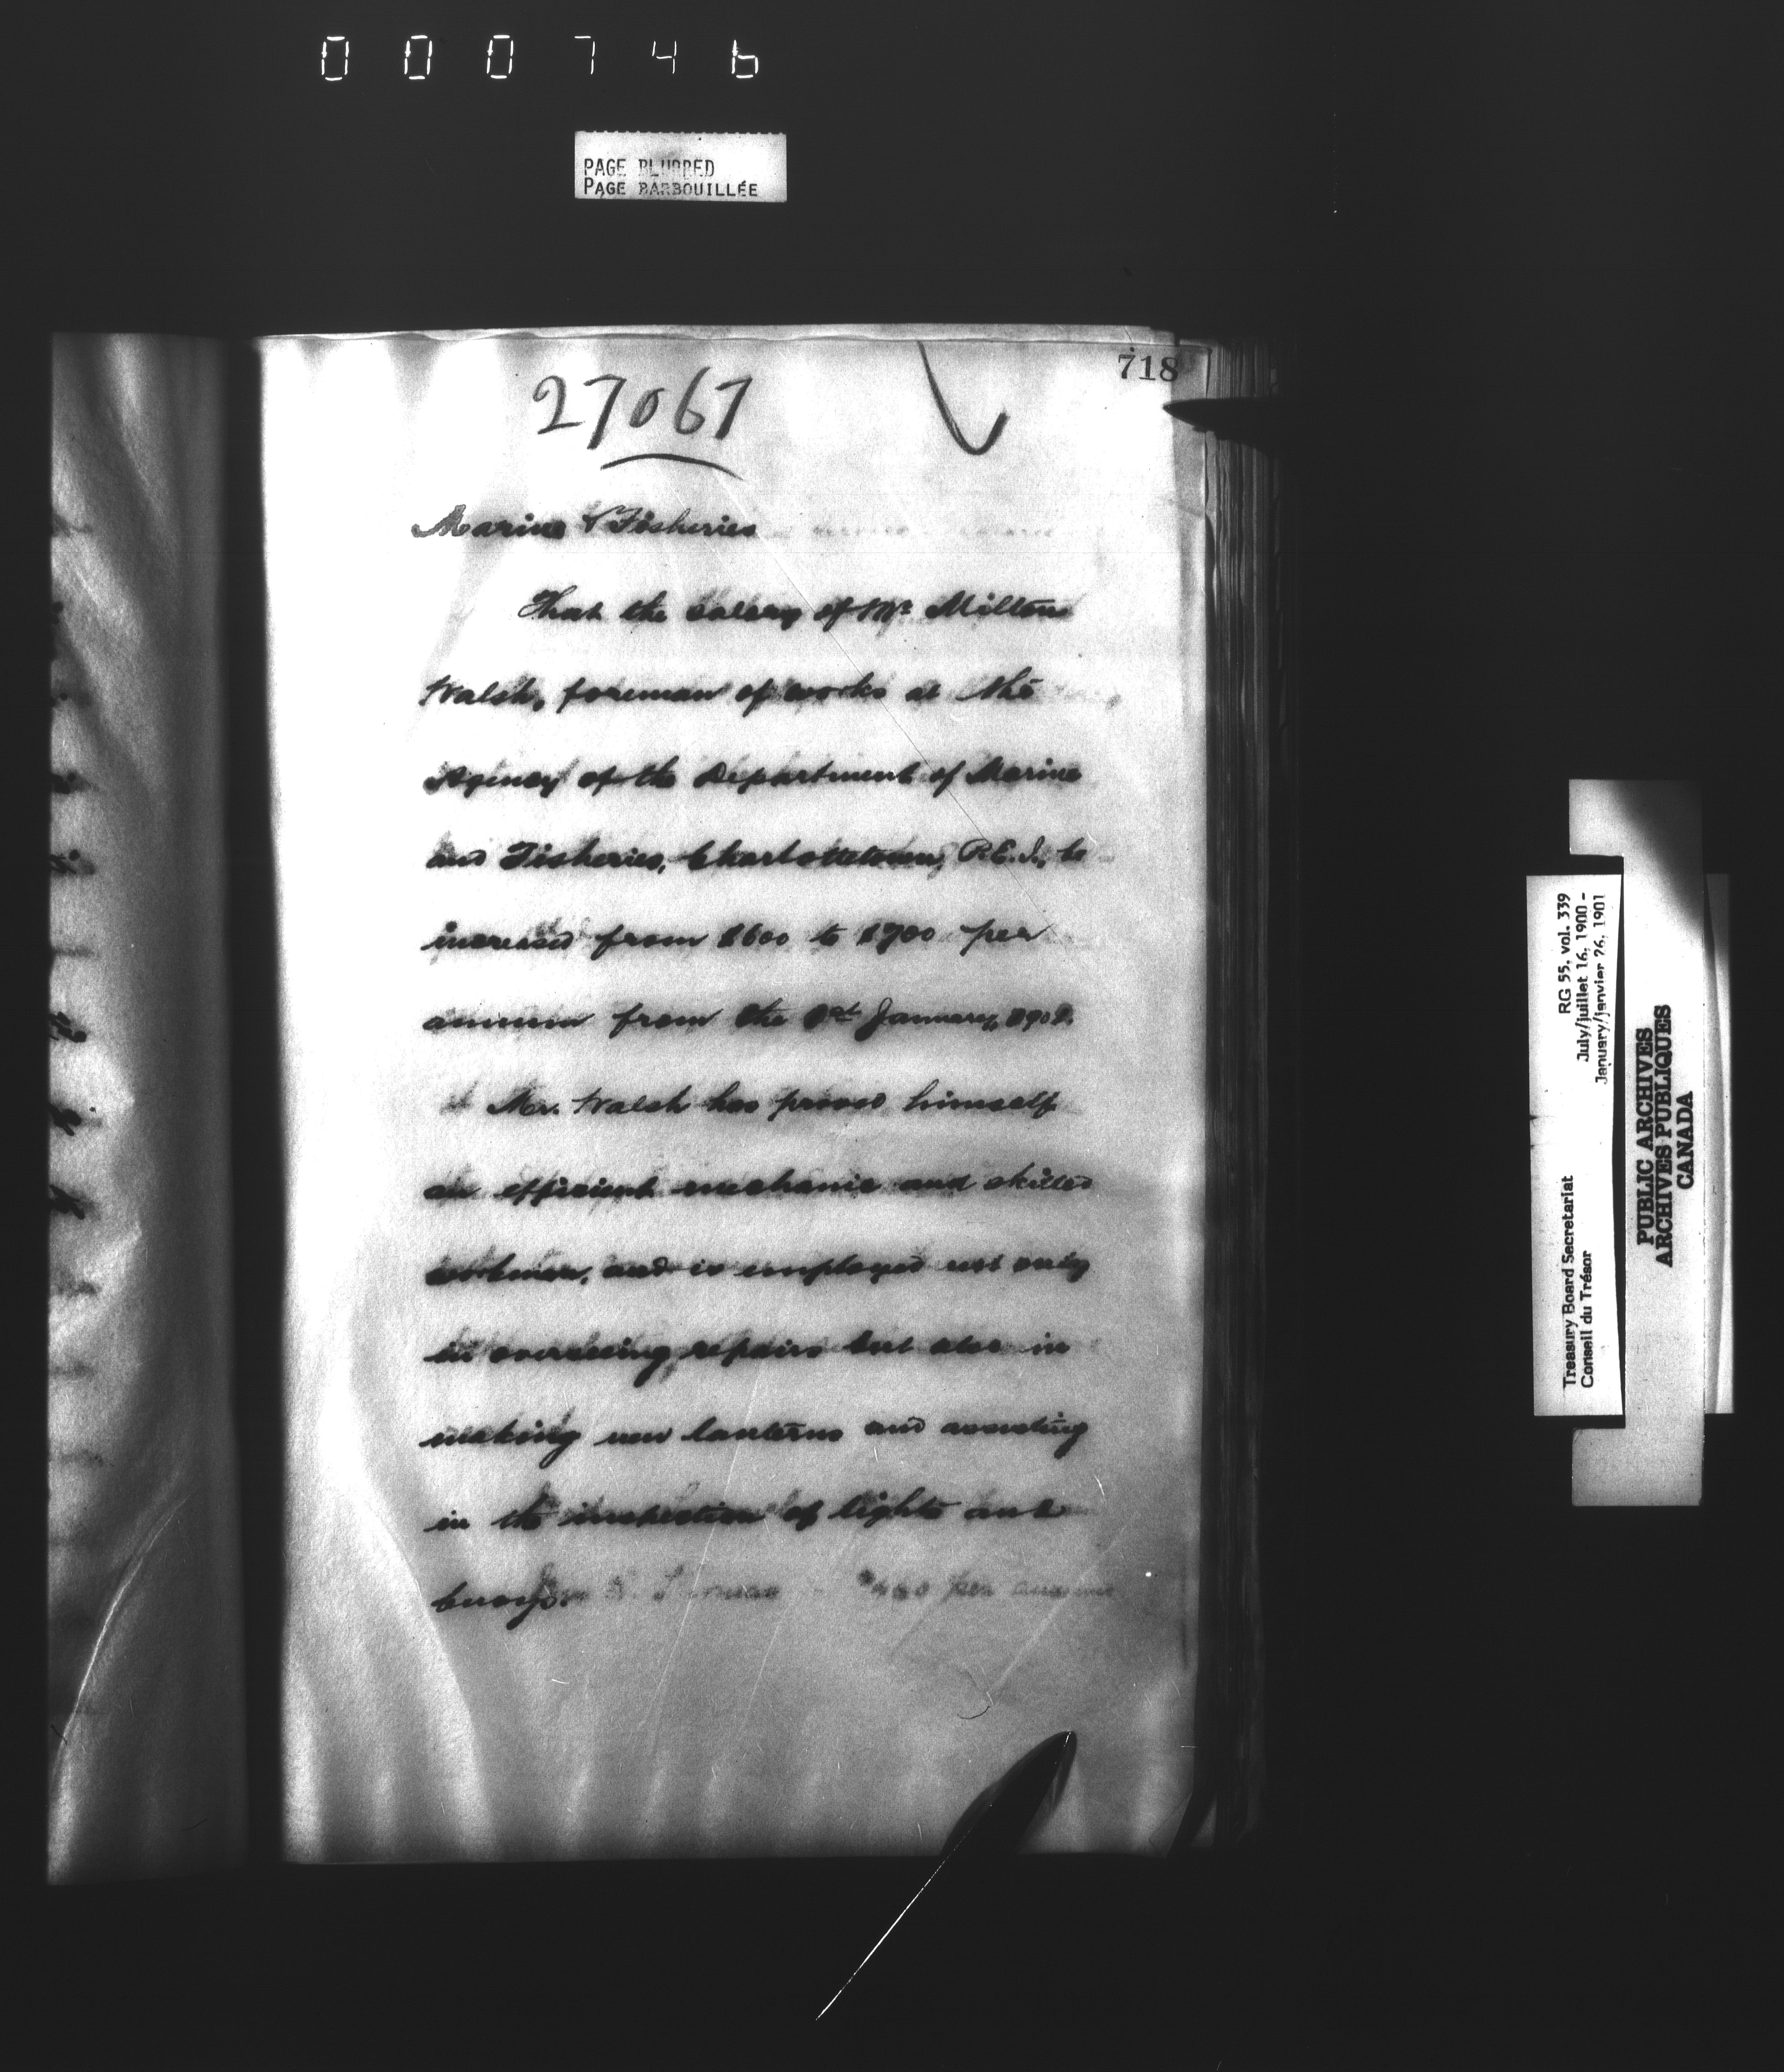 000746
PAGE BLURRED
PAGE BARBOUILLÉE
718
27067
Marine & Fisheries
That the salary of Mr Milton
Walsh, foreman of works at the
Agency of the Department of Marine
and Fisheries, Charlottetown, P.E.I., be
increased from $600 to $700 per
annum from the 1st January, 1901.
Mr. Walsh has proved himself
an efficient mechanic and skilled
workman, and is employed not only
in overseeing repairs but also in
making new lanterns and assisting
in the inspection of lights and
buoys. $ per annum
RG 55, vol. 339
July/juillet 16, 1900 -
January/janvier 26, 1901
Treasury Board Secretariat
Conseil du Trésor
PUBLIC ARCHIVES
ARCHIVES PUBLIQUES
CANADA